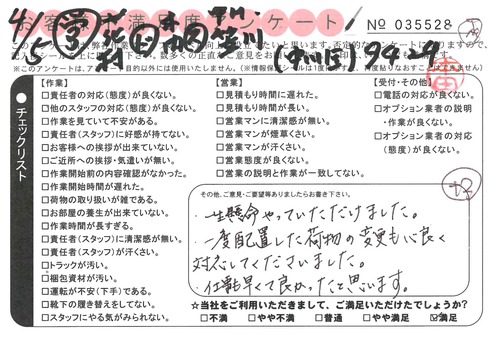 お客様不満足度アンケート
No 035528
4/5
【作業】
□責任者の対応(態度)が良くない。
□他のスタッフの対応(態度)が良くない。
□作業を見ていて不安がある。
□責任者(スタッフ)に好感が持てない。
□お客様への挨拶が出来ていない。
□ご近所への挨拶・気遣いが無い。
□作業開始前の内容確認がなかった。
□作業開始時間が遅れた。
□荷物の取り扱いが雑である。
□お部屋の養生が出来ていない。
□作業時間が長すぎる。
□責任者(スタッフ)に清潔感が無い。
□責任者(スタッフ)が汗くさい。
□トラックが汚い。
□梱包資材が汚い。
□運転が不安(下手)である。
□靴下の履き替えをしてない。
□スタッフにやる気がみられない。
【営業】
□見積もり時間に遅れた。
□見積もり時間が長い。
□営業マンに清潔感が無い。
□営業マンが煙草くさい。
□営業マンが汗くさい。
□営業態度が良くない。
□営業の説明と作業が一致してない。
【受付・その他】
□電話の対応が良くない。
□オプション業者の説明
・作業が良くない。
□オプション業者の対応
(態度)が良くない。
●チェックリスト
その他、ご意見・ご要望等ありましたらお書き下さい。
・一生懸命やっていただけました。
・一度配置した荷物の変更も心良く
対応してくださいました。
・仕事も早くて良かったと思います。
☆当社をご利用いただきまして、ご満足いただけたでしょうか?
□不満 □やや不満 □普通 □やや満足 ☑満足